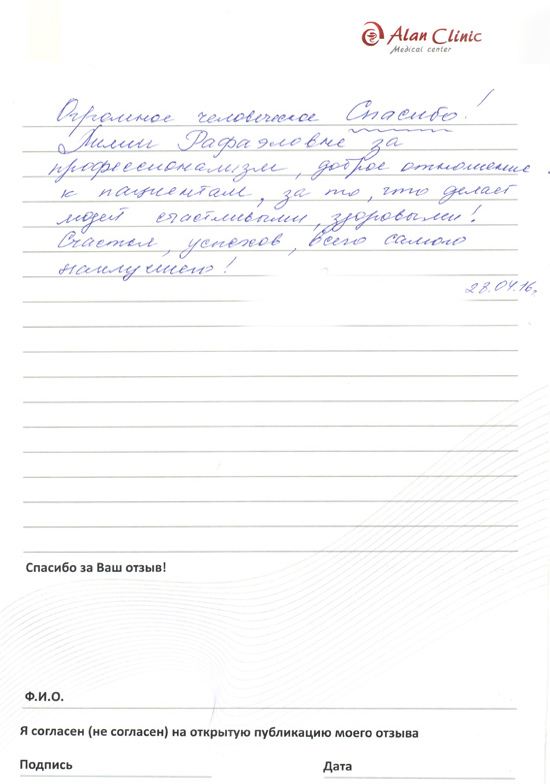 Alan Clinic
Medical center
Огромное человеческое Спасибо!
Лилии Рафаэловне за
профессионализм, доброе отношение
к пациентам, за то, что делает
людей счастливыми, здоровыми!
Счастья, успехов, всего самого
наилучшего!
28.04.16г
Спасибо за Ваш отзыв!
Ф.И.О.
Я согласен (не согласен) на открытую публикацию моего отзыва
Подпись Дата